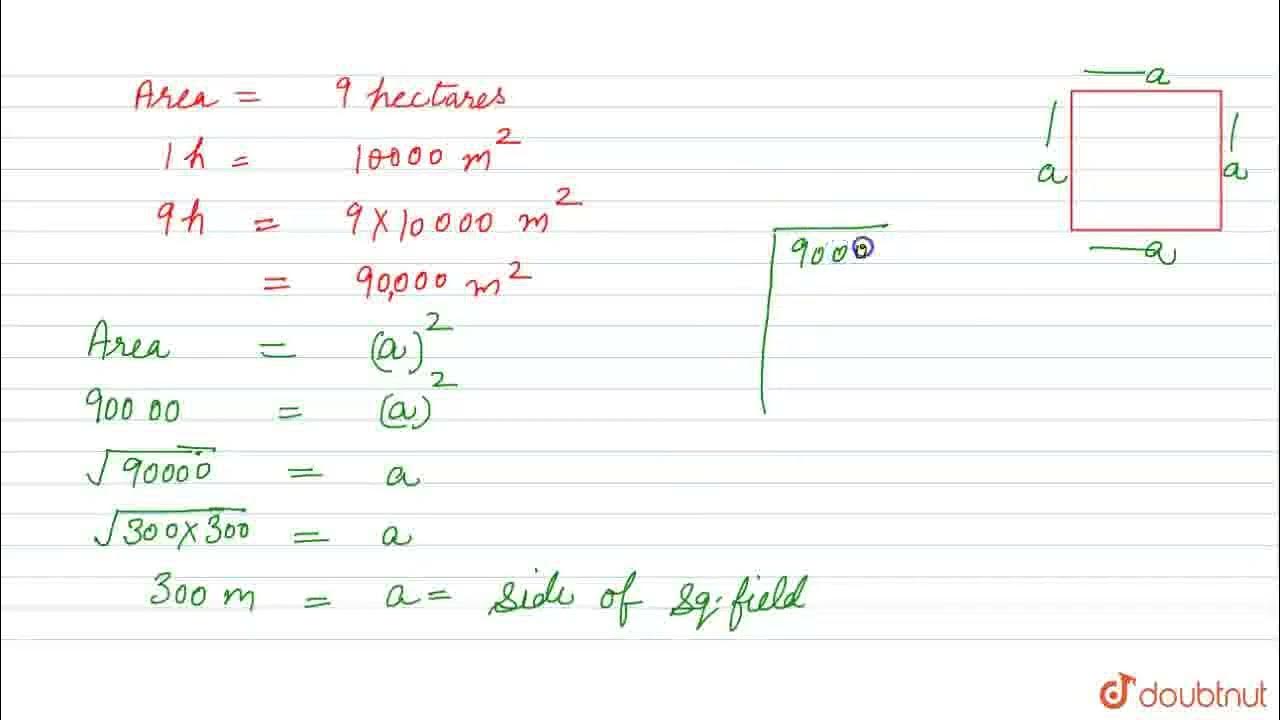 Area = 9 hectares
1h = 10000 m²
9h = 9×10000 m²
= 90,000 m²
Area = (a)²
90000 = (a)²
√90000 = a
√300×300 = a
300 m = a = side of sq. field
9000
a
a
a
a
doubtnut